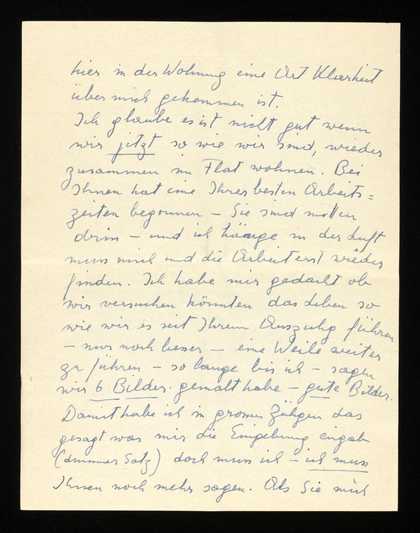 hier in der Wohnung eine Art Klarheit
über mich gekommen ist.
Ich glaube es ist nicht gut wenn
wir jetzt so wie wir sind, wieder
zusammen im Flat wohnen. Bei
Ihnen hat eine Ihrer besten Arbeits=
zeiten begonnen – Sie sind mitten
drin – und ich hänge in der Luft
muss mich und die Arbeit erst wieder
finden. Ich habe mir gedacht ob
wir versuchen könnten das Leben so
wie wir es seit Ihrem Auszug führen
– nur noch besser – eine Weile weiter
zu führen – so lange bis ich – sagen
wir 6 Bilder gemalt habe – gute Bilder.
Damit habe ich in grossen Zügen das
gesagt was mir die Eingebung eingab
(dummer Satz) doch muss ich – ich muss
Ihnen noch mehr sagen. Als Sie mich